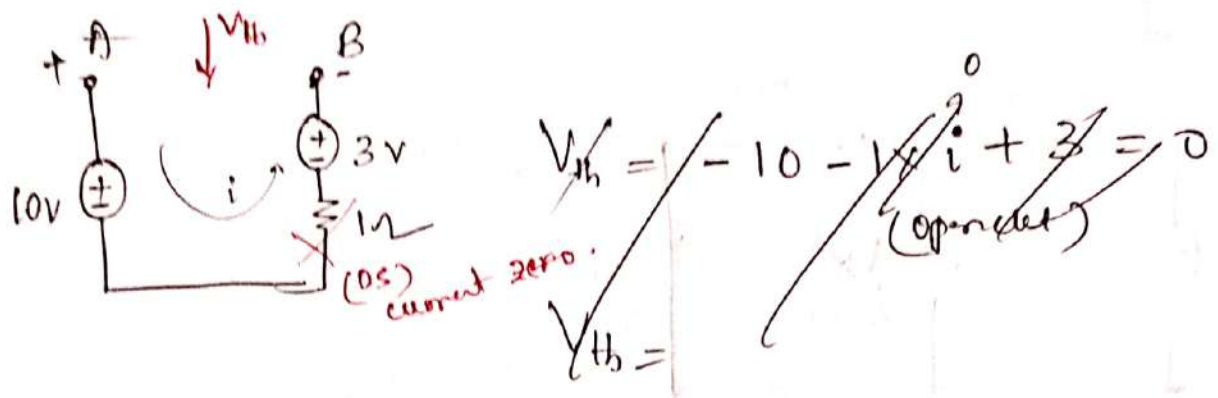 + A
V_th
B -
10V
i
3V
1Ω
(OS)
current zero.
0
V_th = - 10 - 1×i + 3 = 0
(open ckt)
V_th =